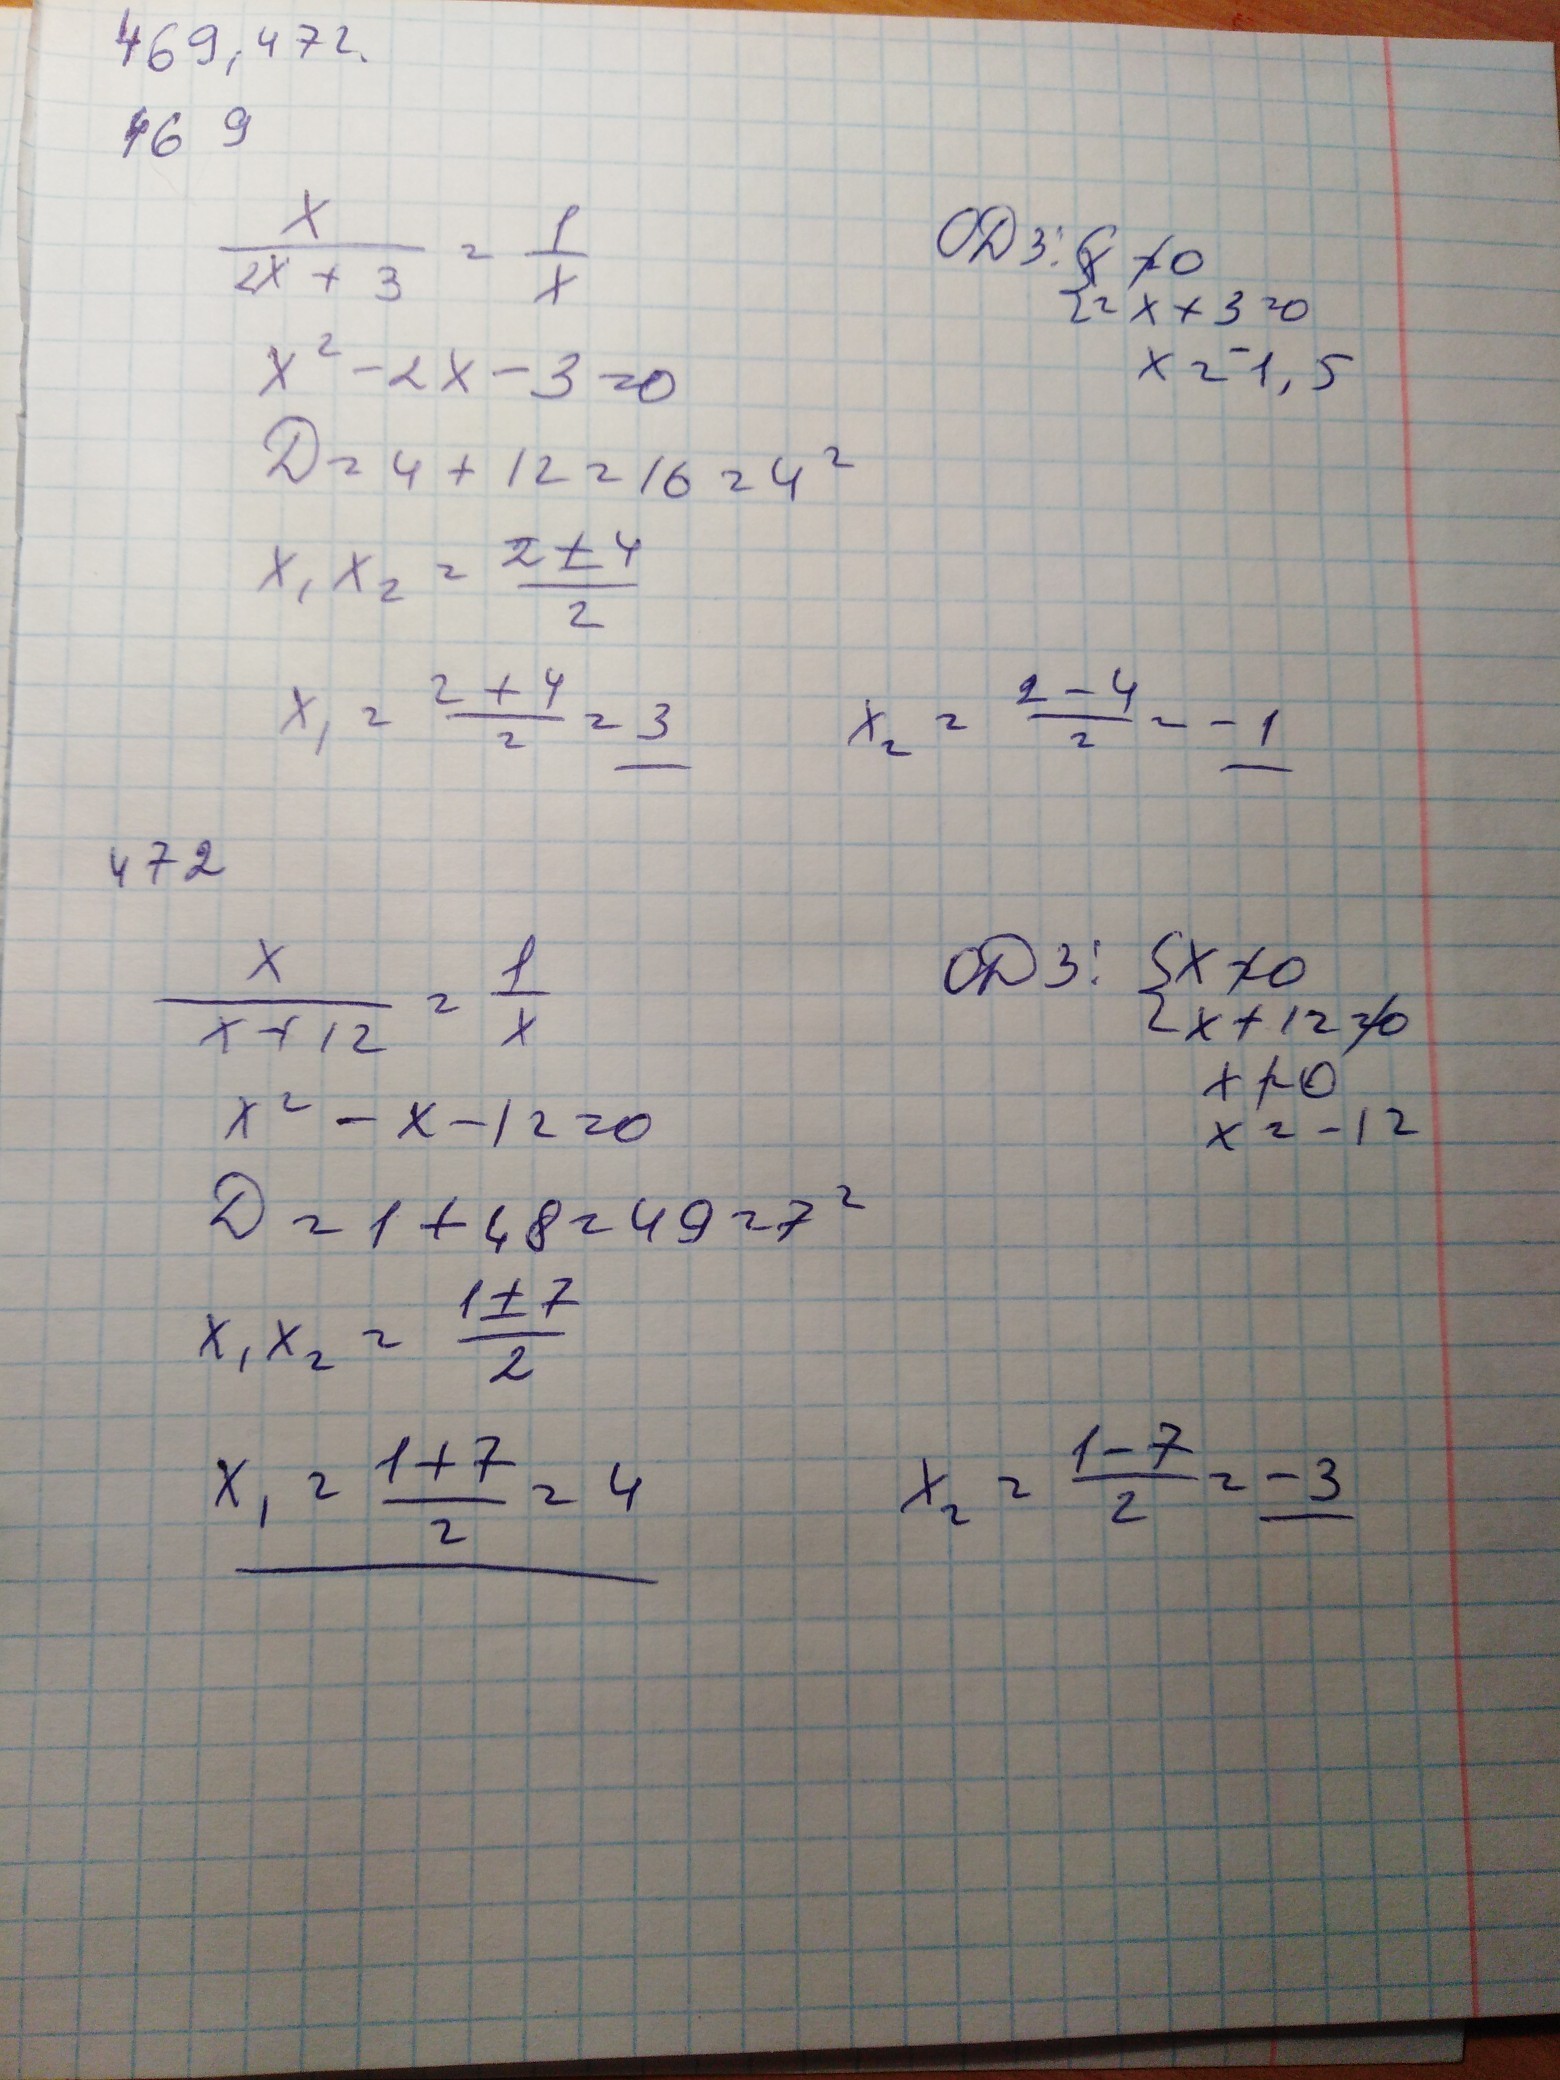 469, 472.
469
x / (2x + 3) = 1 / x
ОДЗ: { x ≠ 0
{ 2x + 3 = 0
x = -1,5
x² - 2x - 3 = 0
D = 4 + 12 = 16 = 4²
x₁ x₂ = (2 ± 4) / 2
x₁ = (2 + 4) / 2 = 3
x₂ = (2 - 4) / 2 = -1
472
x / (x + 12) = 1 / x
ОДЗ: { x ≠ 0
{ x + 12 ≠ 0
x ≠ 0
x = -12
x² - x - 12 = 0
D = 1 + 48 = 49 = 7²
x₁ x₂ = (1 ± 7) / 2
x₁ = (1 + 7) / 2 = 4
x₂ = (1 - 7) / 2 = -3